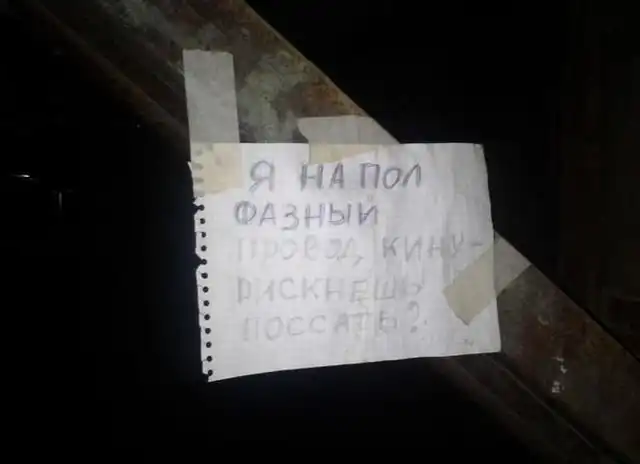 Я НА ПОЛ
ФАЗНЫЙ
ПРОВОД КИНУ-
РИСКНЕШЬ
ПОССАТЬ?